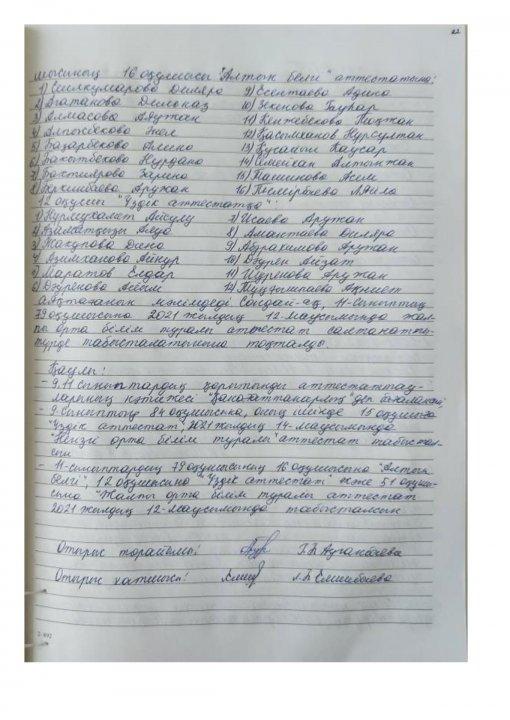 22
мысының 16 оқушысы "Алтын белгі" аттестатына:
1) Сейлкумарова Диляра 9) Есентаева Адина
2) Аратанова Дильназ 10) Зекенова Гаухар
3) Алмасова Аружан 11) Кенжебекова Назжан
4) Алпысбекова Жан 12) Қасымханов Нурсултан
5) Базарбекова Амина 13) Құсайын Каусар
6) Бақытбекова Нұрдана 14) Смейхан Алтынжан
7) Бактиярова Зарина 15) Пашинова Асем
8) Еркимбаева Аружан 16) Тасмірбаева Лаила
12 оқушы "Үздік аттестатқа":
1) Нұрмұхамет Айсулу 7) Исаева Аружан
2) Азаматқызы Аяда 8) Амантаева Диляра
3) Жакупова Дана 9) Абрахимова Аружан
4) Азимханова Айнур 10) Әзірен Айзат
5) Маратов Елдар 11) Шуренова Аружан
6) Әбуренова Асем 12) Ақниет
мәлімдеді. Сондай-ақ, 11-сыныптың
79 оқушысына 2021 жылдың 12-маусымында жал-
пы орта білім туралы аттестат салтанатты
түрде табысталатынына тоқталды.
Қаулы:
- 9, 11 сыныптардың қорытынды аттестаттау-
ларының нәтижесі "Қанағаттанарлық" деп бағалансын;
- 9-сыныптың 84 оқушысына, оның ішінде 15 оқушыға
"Үздік аттестат", 2021 жылдың 14-маусымында
"Негізгі орта білім туралы" аттестат табыстал-
сын
- 11-сыныптардың 79 оқушысының 16 оқушысына "Алтын
белгі", 12 оқушысына "Үздік аттестат" және 51 оқушы-
сына "Жалпы орта білім туралы аттестат
2021 жылдың 12-маусымында табысталсын
Отырыс төрайымы: Г.Б Азганбаева
Отырыс хатшысы: Л.Б Емшибаева